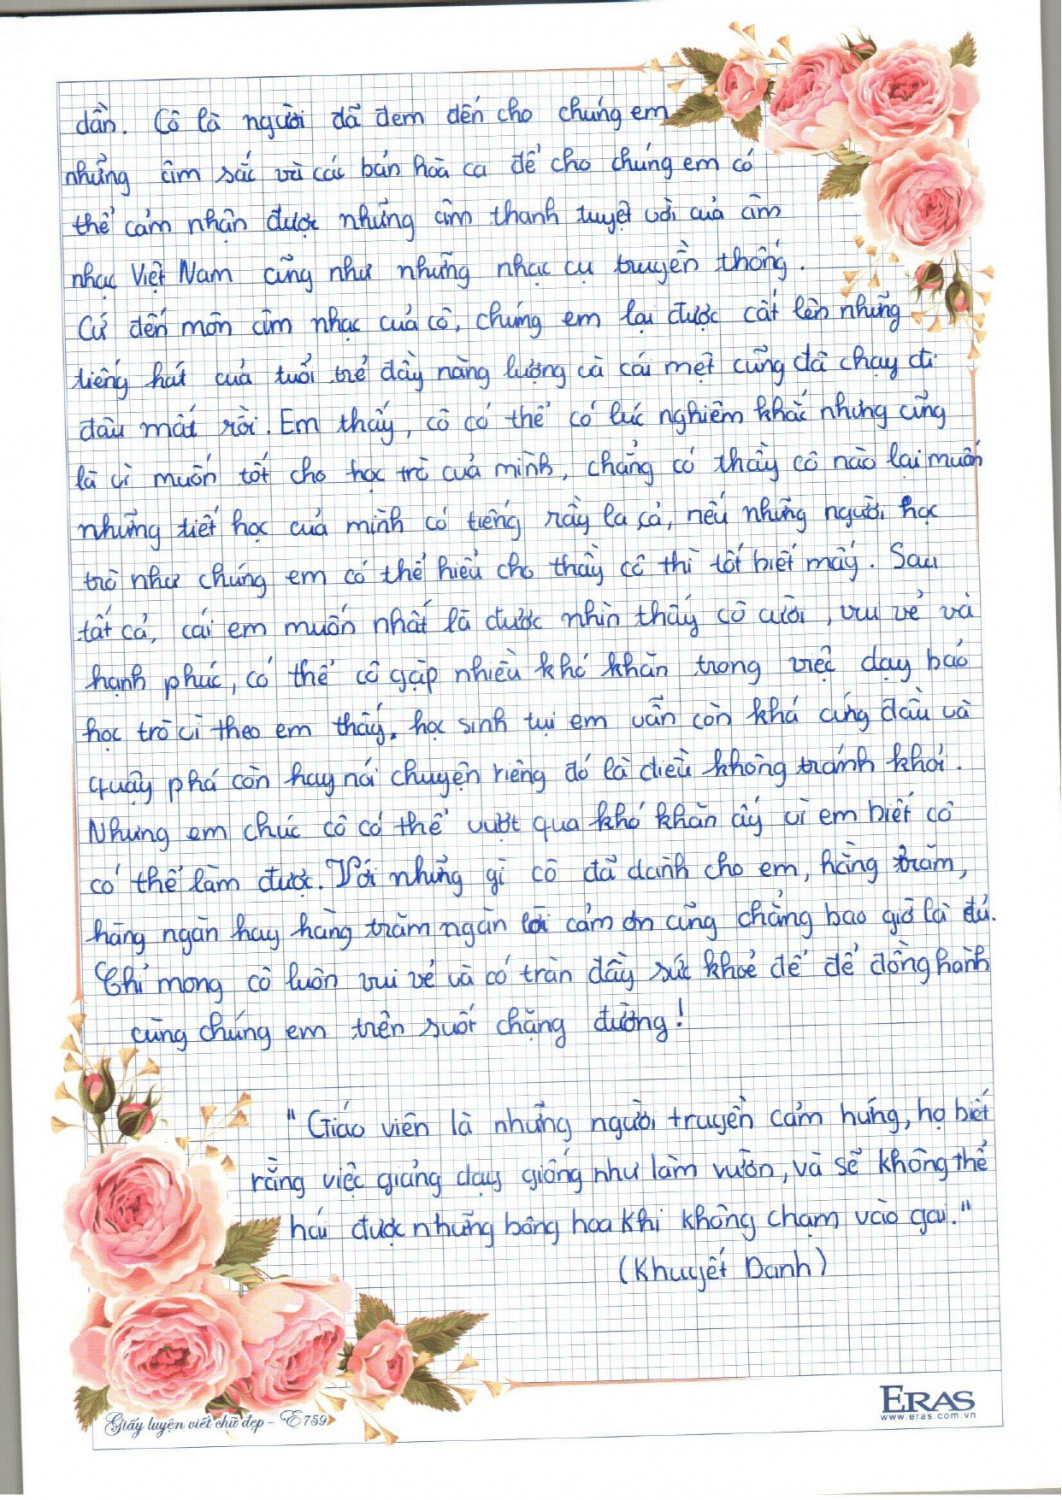 dần. Cô là người đã đem đến cho chúng em
những âm sắc và các bản hoà ca để cho chúng em có
thể cảm nhận được những âm thanh tuyệt vời của âm
nhạc Việt Nam cũng như những nhạc cụ truyền thống.
Cứ đến môn âm nhạc của cô, chúng em lại được cất lên những
tiếng hát của tuổi trẻ đầy năng lượng và cái mệt cũng đã chạy đi
đâu mất rồi. Em thấy, cô có thể có lúc nghiêm khắc nhưng cũng
là vì muốn tốt cho học trò của mình, chẳng có thầy cô nào lại muốn
những tiết học của mình có tiếng rầy la cả, nếu những người học
trò như chúng em có thể hiểu cho thầy cô thì tốt biết mấy. Sau
tất cả, cái em muốn nhất là được nhìn thấy cô cười, vui vẻ và
hạnh phúc, có thể cô gặp nhiều khó khăn trong việc dạy bảo
học trò vì theo em thấy, học sinh tụi em vẫn còn khá cứng đầu và
quậy phá còn hay nói chuyện riêng đó là điều không tránh khỏi.
Nhưng em chúc cô có thể vượt qua khó khăn ấy vì em biết cô
có thể làm được. Với những gì cô đã dành cho em, hàng trăm,
hàng ngàn hay hàng trăm ngàn lời cảm ơn cũng chẳng bao giờ là đủ.
Chỉ mong cô luôn vui vẻ và có tràn đầy sức khoẻ để để đồng hành
cùng chúng em trên suốt chặng đường!
"Giáo viên là những người truyền cảm hứng, họ biết
rằng việc giảng dạy giống như làm vườn, và sẽ không thể
hái được những bông hoa khi không chạm vào gai."
(Khuyết Danh)
Giấy luyện viết chữ đẹp - E759
ERAS
www.eras.com.vn